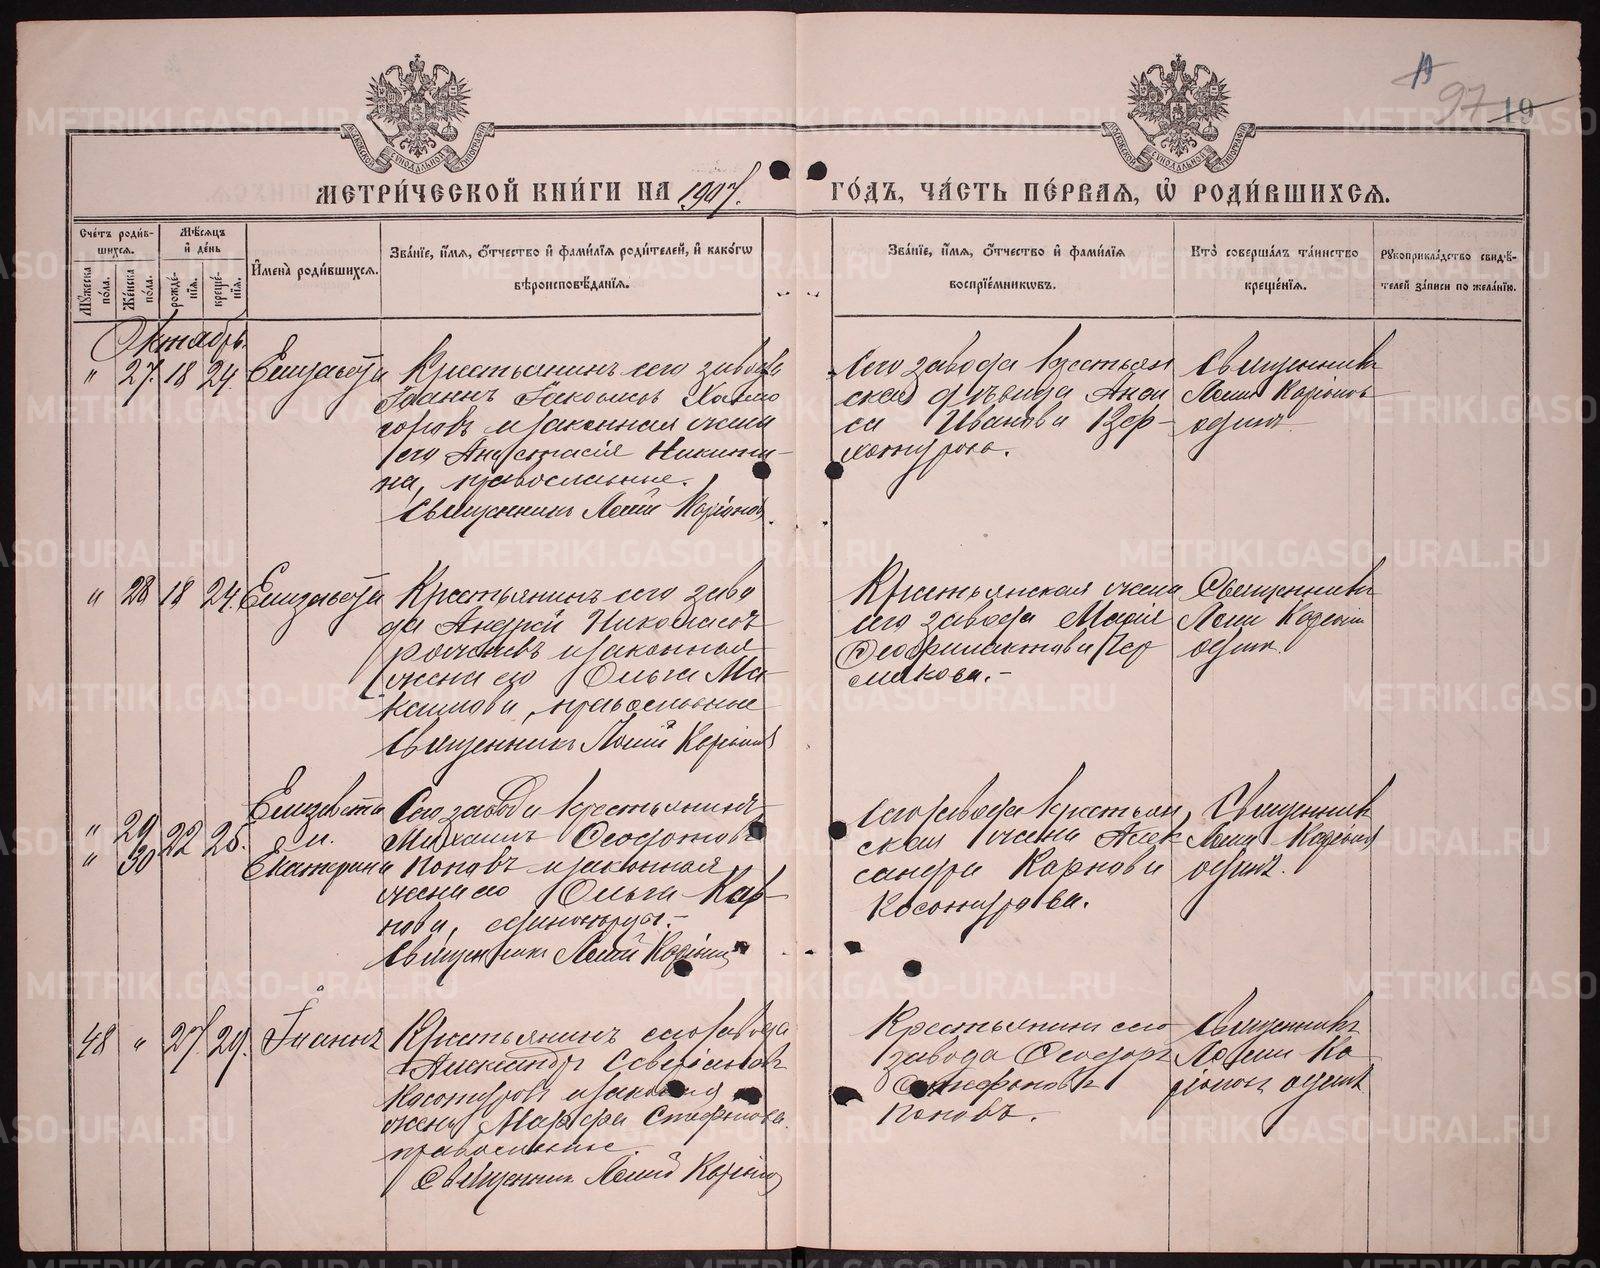 19
97 19
МЕТРИ́ЧЕСКОЙ КНИ́ГИ НА 1907. ГО́ДЪ, ЧА́СТЬ ПЕ́РВАЯ, Ѽ РОДИ́ВШИХСЯ.
Сче́тъ роди́в-
шихся.
Му́жеска по́ла.
Же́нска по́ла.
Мѣ́сяцъ
и́ де́нь
рожде́-
нїя.
креще́-
нїя.
И҆мена̀ роди́вшихся.
Зва́нїе, и҆́мя, ѻ҆́тчество и҆ фами́лїя роди́телей, и҆ како́гѡ
вѣроисповѣ́данїя.
Зва́нїе, и҆́мя, ѻ҆́тчество и҆ фами́лїя
воспрїе́мникѡвъ.
Кто̀ соверша́лъ та́инство
креще́нїя.
Рукоприкла́дство свидѣ́-
телей за́писи по жела́нїю.
Октябрь.
" 27. 18 24. Елизавета
Крестьянинъ сего завода
Іоаннъ Іаковлевъ Холмо
горовъ и законная жена
его Анастасія Никити-
на, православные.
Священникъ
Сего завода крестьян
ская дѣвица Анфи
са Иванова Вер-
хотурова.
Священникъ
одинъ
" 28 18 24. Елизавета
Крестьянинъ сего заво
да Андрей Николаевъ
и законная
жена его Ольга Ма-
ксимова, православные
Священникъ
Крестьянская жена
сего завода Марія
Ѳеофилактова Пер
мякова.-
Священникъ
одинъ.
" 29
" 30 22 25.
Елизавета
и
Екатерина
Сего завода крестьянинъ
Михаилъ Ѳеодотовъ
Поповъ и законная
жена его Ольга Кар-
пова, единовѣрцы.-
Священникъ
Сего завода крестьян
ская жена Алек
сандра Карпова
Косотурова.
Священникъ
одинъ.
48 " 27 29. Іоаннъ
Крестьянинъ сего завода
Александръ Северіановъ
Косотуровъ и законная
жена Марфа Стефанова
православные.
Священникъ
Крестьянинъ сего
завода Ѳеодоръ
Стефановъ
Поповъ.
Священникъ
одинъ
METRIKI.GASO-URAL.RU